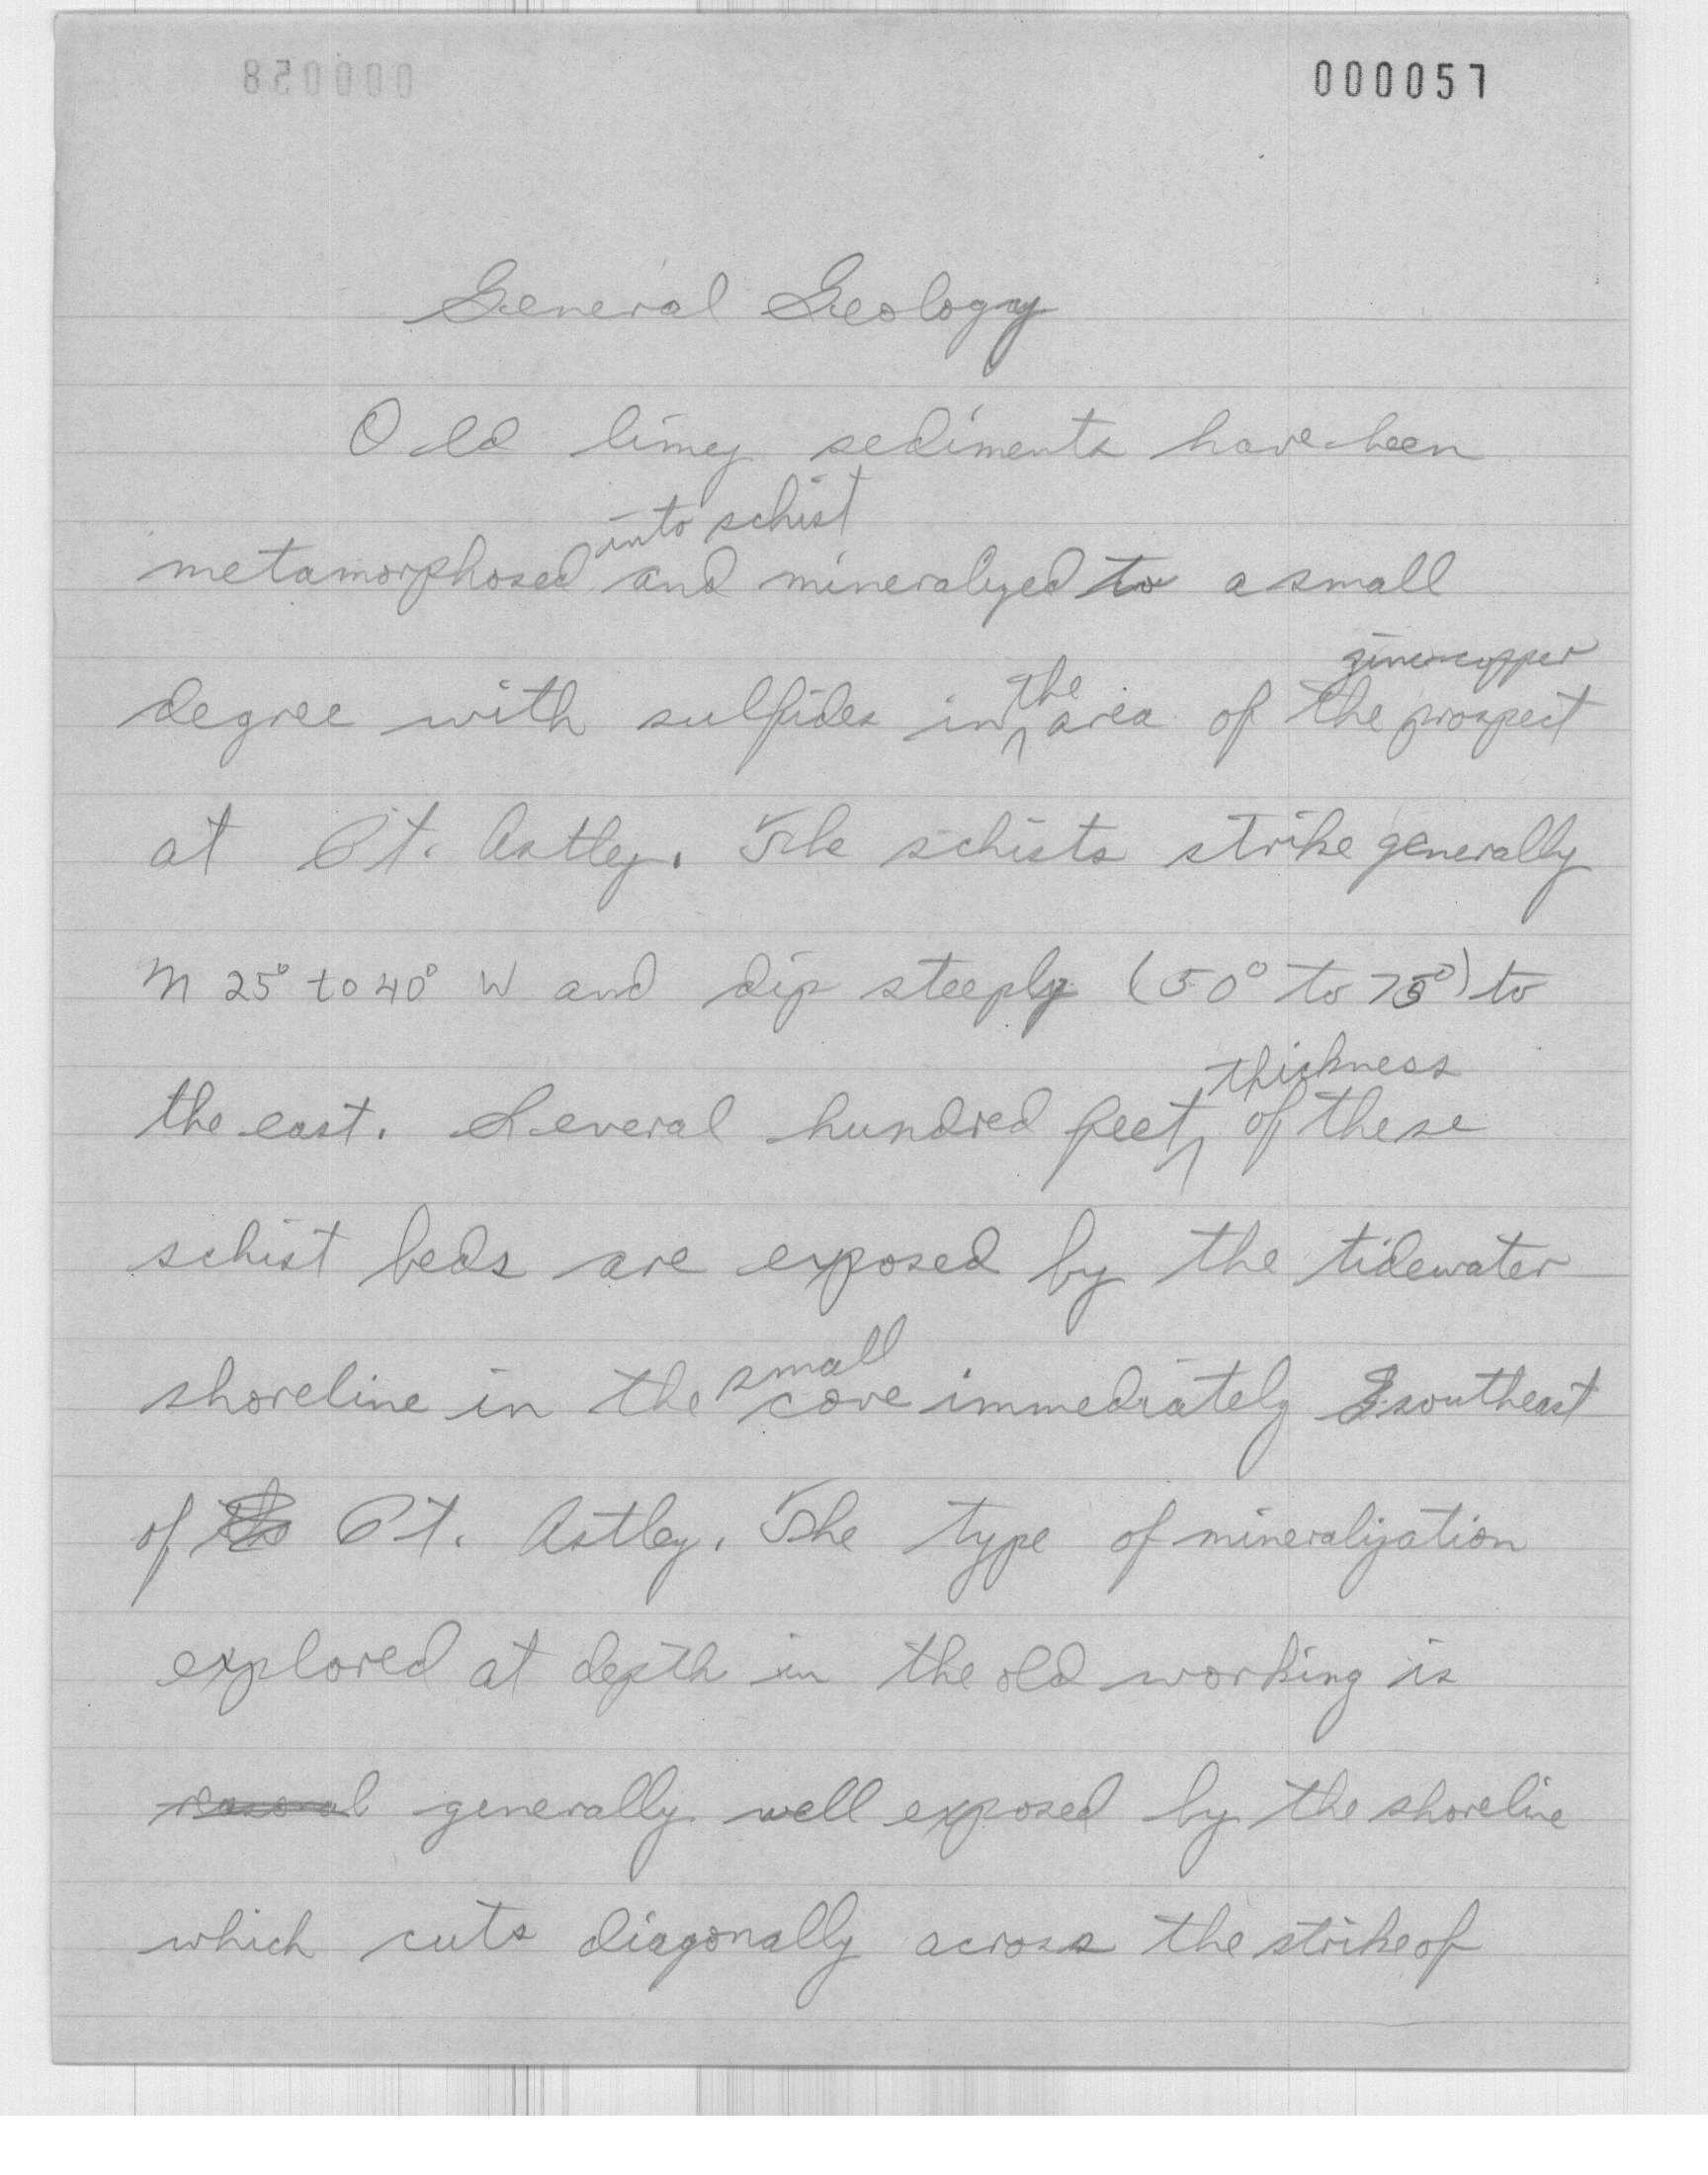 000057
General Geology
Old limey sediments have been
into schist
metamorphosed and mineralized to a small
the zinc-copper
degree with sulfides in area of the prospect
at Pt. Astley. The schists strike generally
N 25° to 40° W and dip steeply (50° to 75°) to
thickness
the east. Several hundred feet of these
schist beds are exposed by the tidewater
small
shoreline in the cove immediately southeast
of Pt. Astley. The type of mineralization
explored at depth in the old working is
generally well exposed by the shoreline
which cuts diagonally across the strike of